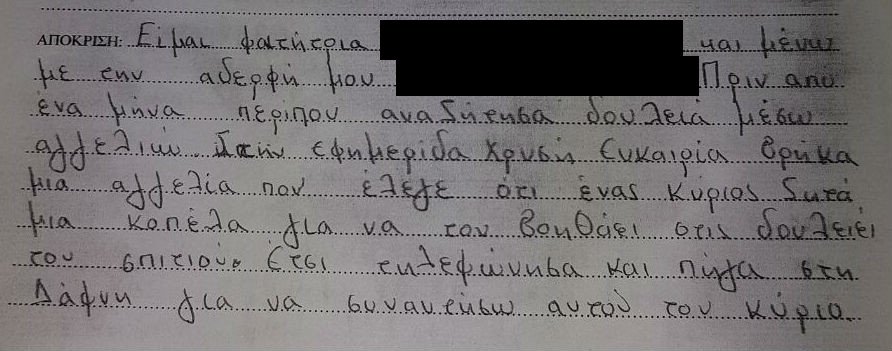 ΑΠΟΚΡΙΣΗ: Είμαι φοιτήτρια και μένω
με την αδερφή μου Πριν από
ένα μήνα περίπου αναζήτησα δουλειά μέσω
αγγελιών. Στην εφημερίδα Χρυσή Ευκαιρία βρήκα
μια αγγελία που έλεγε ότι ένας κύριος ζητά
μια κοπέλα για να τον βοηθάει στις δουλειές
του σπιτιού. Ετσι τηλεφώνησα και πήγα στη
Δάφνη για να συναντήσω αυτού τον κύριο.